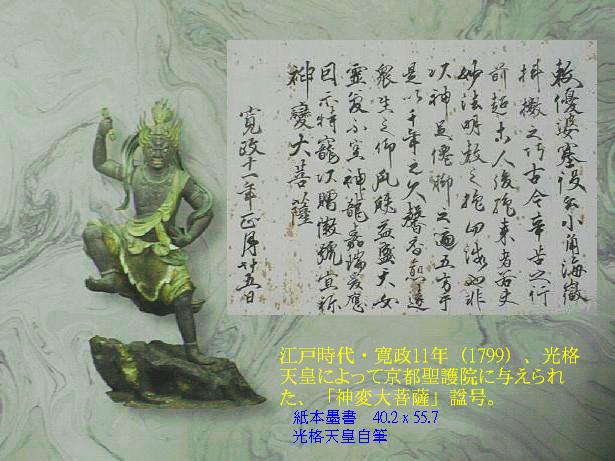 敕優婆塞役公小角海嶽
抖擻之巧古今辛苦之行
前超古人後絶来者若夫
妙法明教之施四海也非
以神足僊脚之遍五方乎
是以千年之久馨香烈遠
衆生之仰風猷益盛天女
靈不空神龍嘉瑞爰應
因示特寵以贈徽號宜称
神變大菩薩
寛政十一年正月廿五日
江戸時代・寛政11年（1799）、光格
天皇によって京都聖護院に与えられ
た、「神変大菩薩」諡号。
紙本墨書　40.2 x 55.7
光格天皇自筆